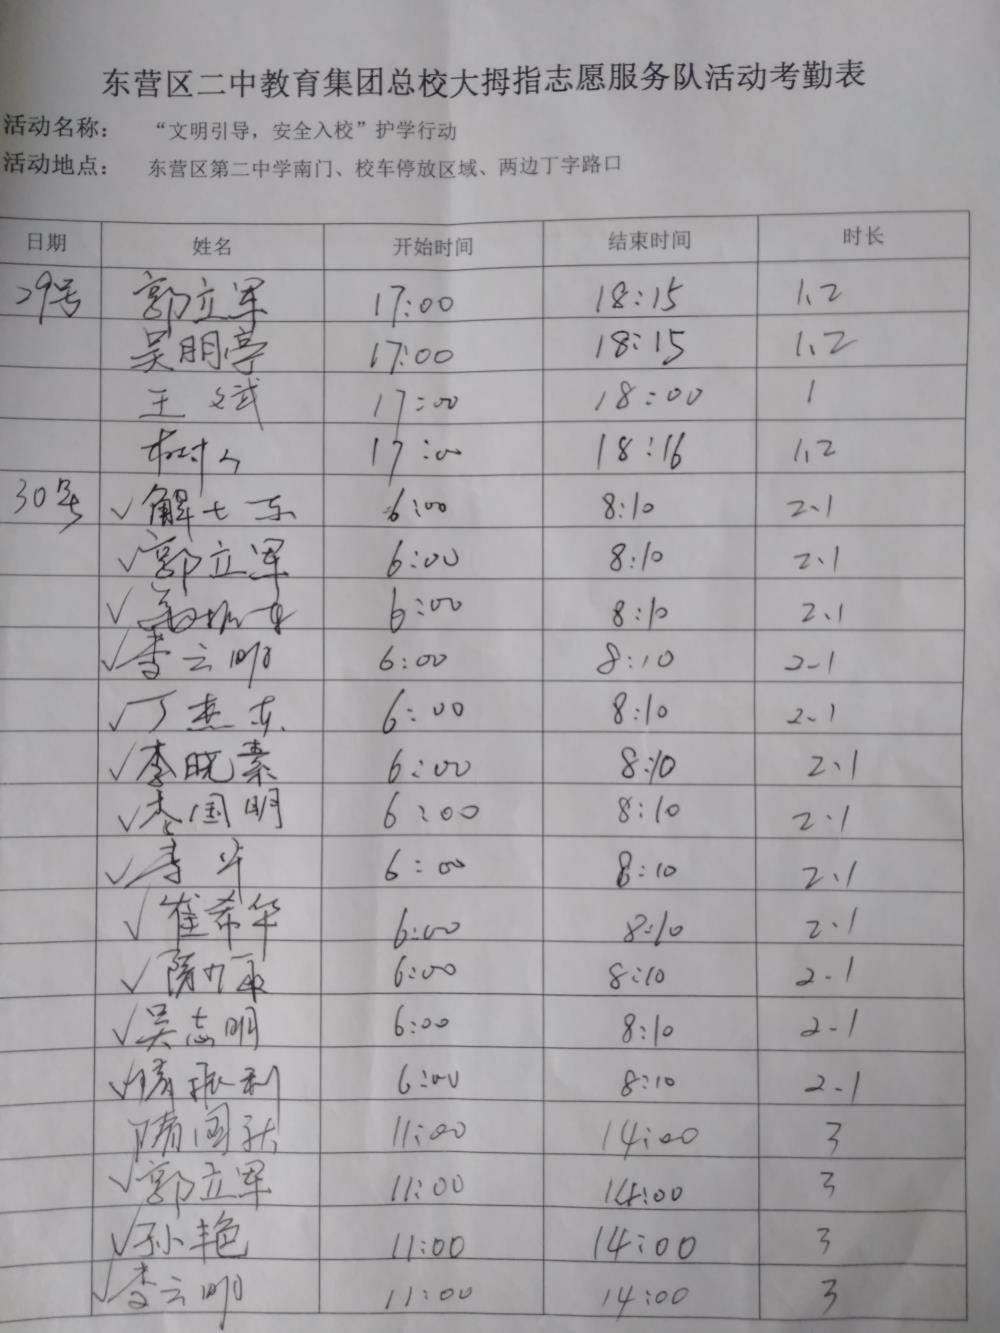 东营区二中教育集团总校大拇指志愿服务队活动考勤表
活动名称： “文明引导，安全入校”护学行动
活动地点： 东营区第二中学南门、校车停放区域、两边丁字路口
日期 姓名 开始时间 结束时间 时长
29号 郭立军 17:00 18:15 1.2
吴明亭 17:00 18:15 1.2
王文斌 17:00 18:00 1
树人 17:00 18:16 1.2
30号 ✓解七东 6:00 8:10 2.1
✓郭立军 6:00 8:10 2.1
✓ 6:00 8:10 2.1
✓李云明 6:00 8:10 2.1
✓丁燕东 6:00 8:10 2.1
✓李晓素 6:00 8:10 2.1
✓李国明 6:00 8:10 2.1
✓李 6:00 8:10 2.1
✓崔希华 6:00 8:10 2.1
✓隋 6:00 8:10 2.1
✓吴志明 6:00 8:10 2.1
✓隋振利 6:00 8:10 2.1
隋国 11:00 14:00 3
✓郭立军 11:00 14:00 3
✓孙艳 11:00 14:00 3
✓李云明 11:00 14:00 3